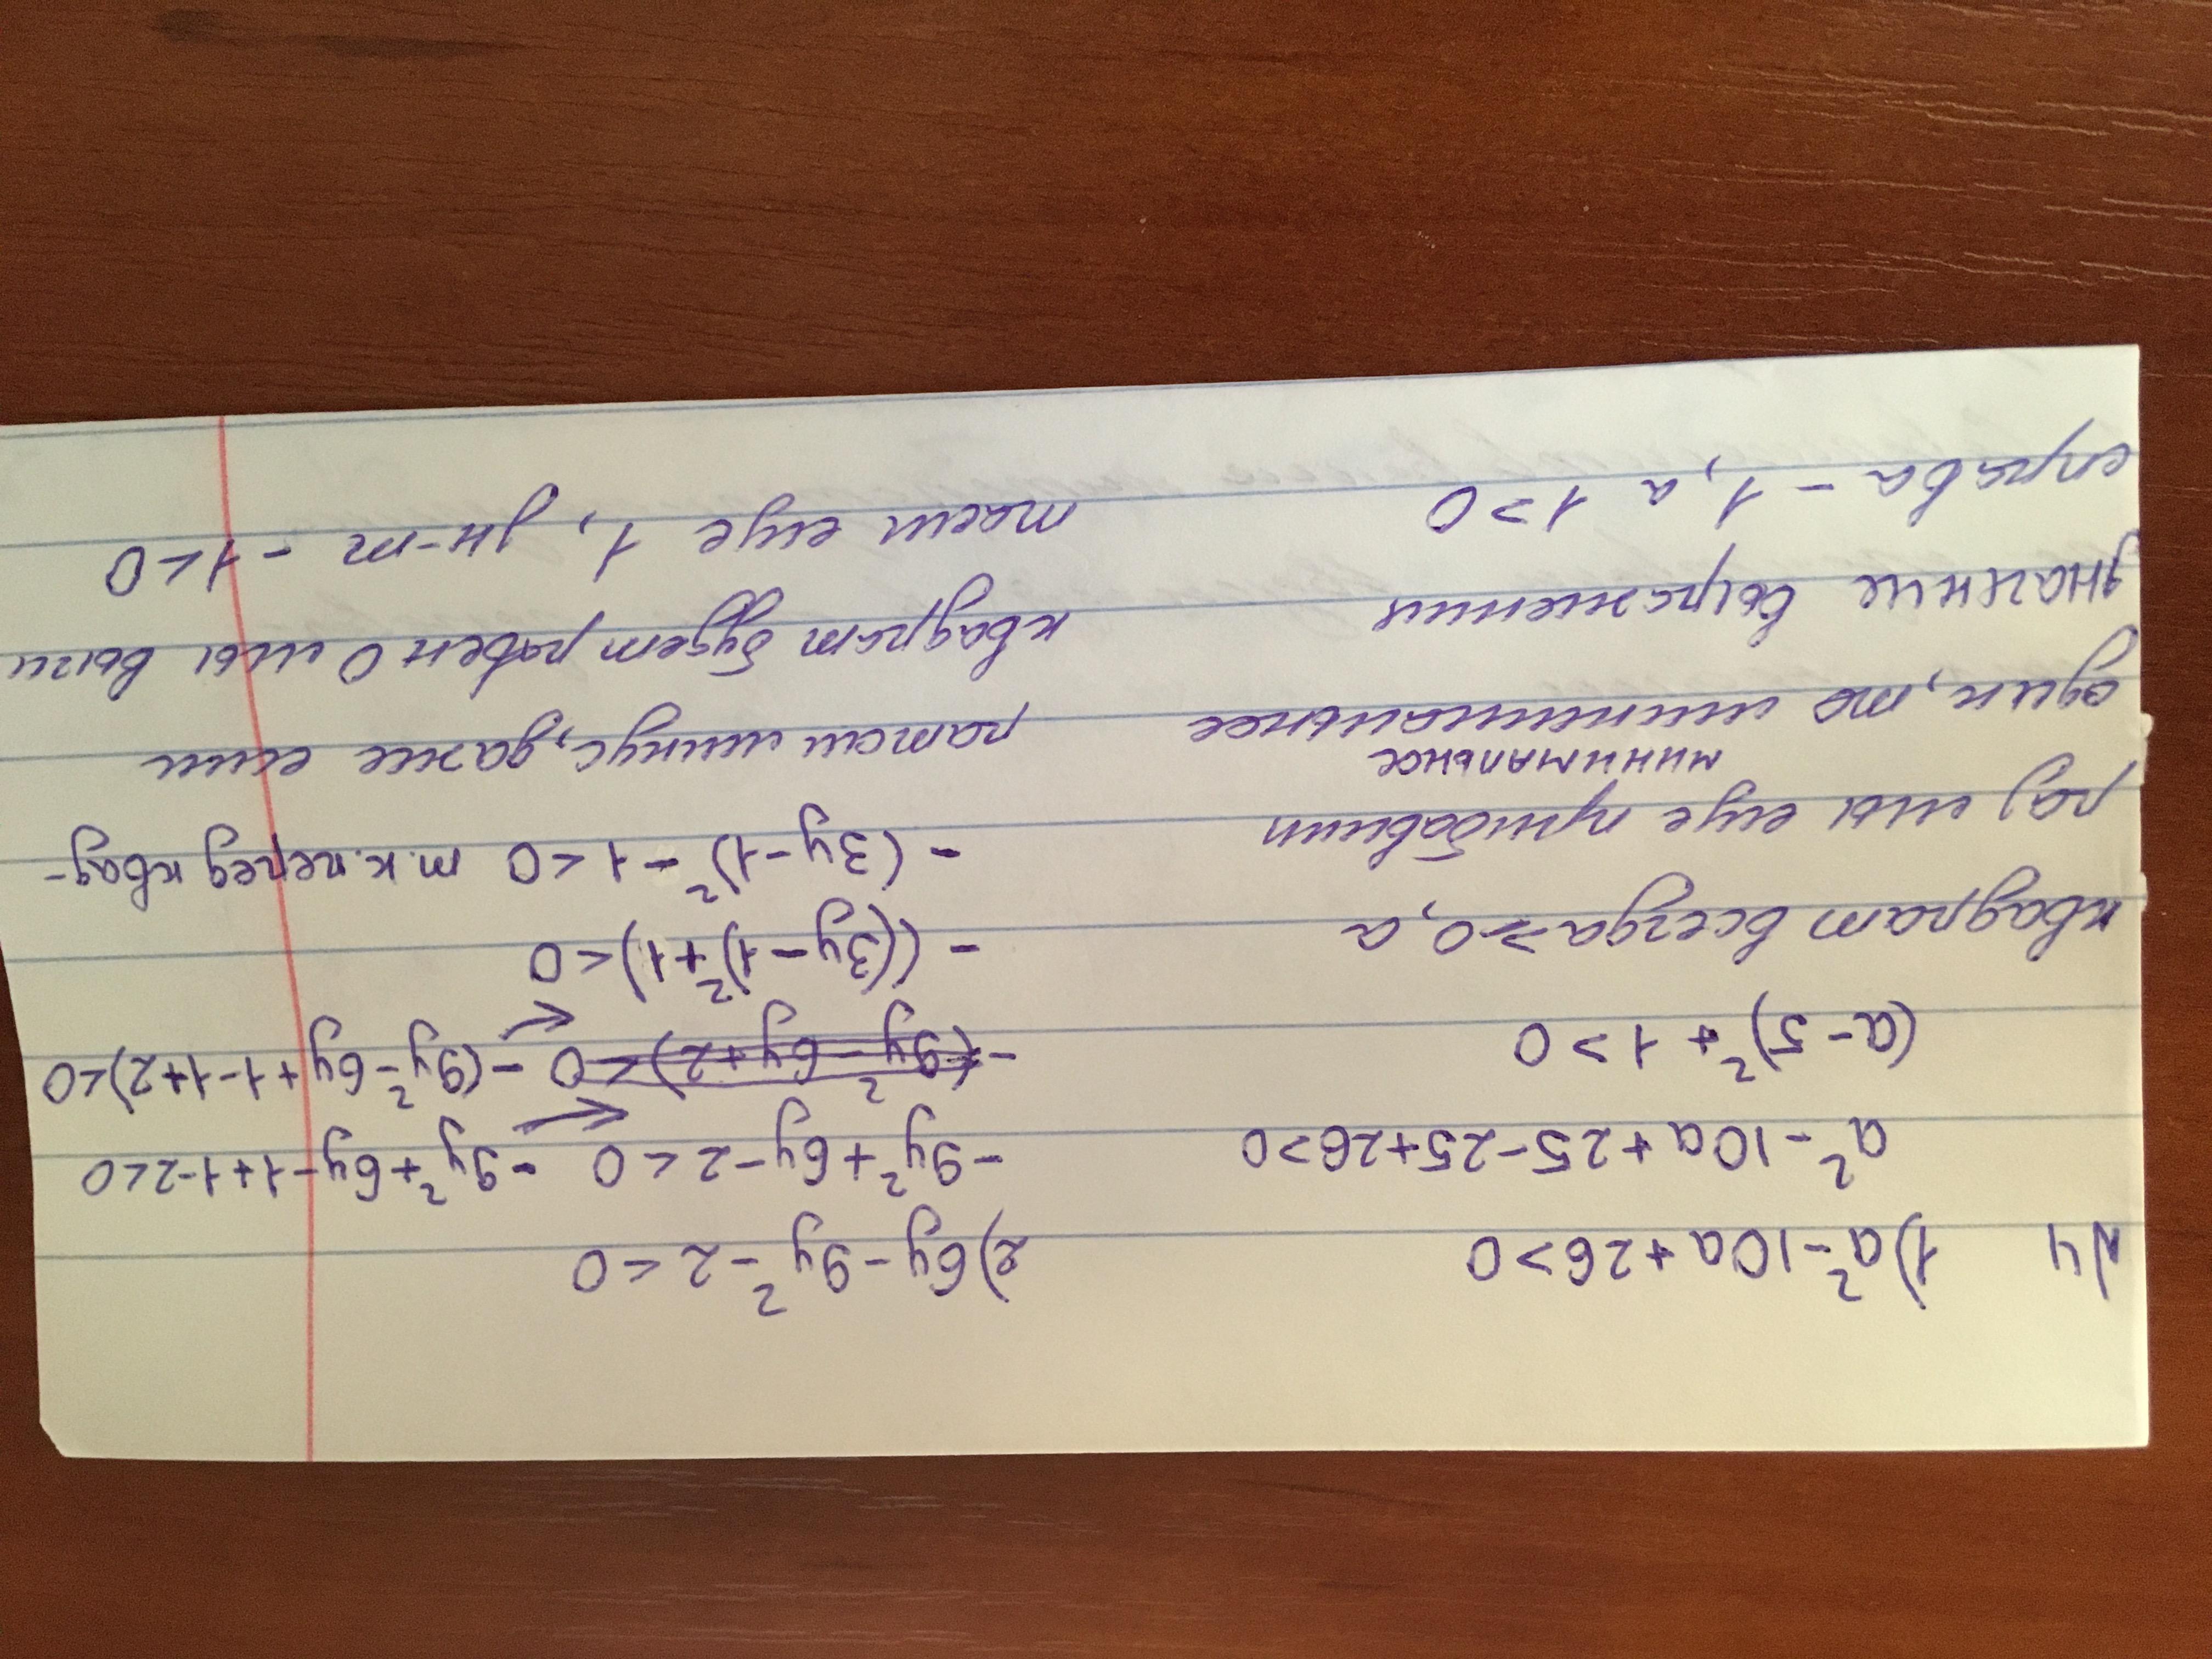 N4 1) a² - 10a + 26 > 0
a² - 10a + 25 - 25 + 26 > 0
(a - 5)² + 1 > 0
квадрат всегда ≥ 0, а
раз мы еще прибавим
минимальное
один, то минимальное
значение выражения
справа - 1, а 1 > 0
2) 6y - 9y² - 2 < 0
-9y² + 6y - 2 < 0 → -9y² + 6y - 1 + 1 - 2 < 0
-(9y² - 6y + 2) < 0 → -(9y² - 6y + 1 - 1 + 2) < 0
-((3y - 1)² + 1) < 0
-(3y - 1)² - 1 < 0 т.к. перед квад-
ратом минус, даже если
квадрат будет равен 0 мы вычи
таем еще 1, зн-т -1 < 0